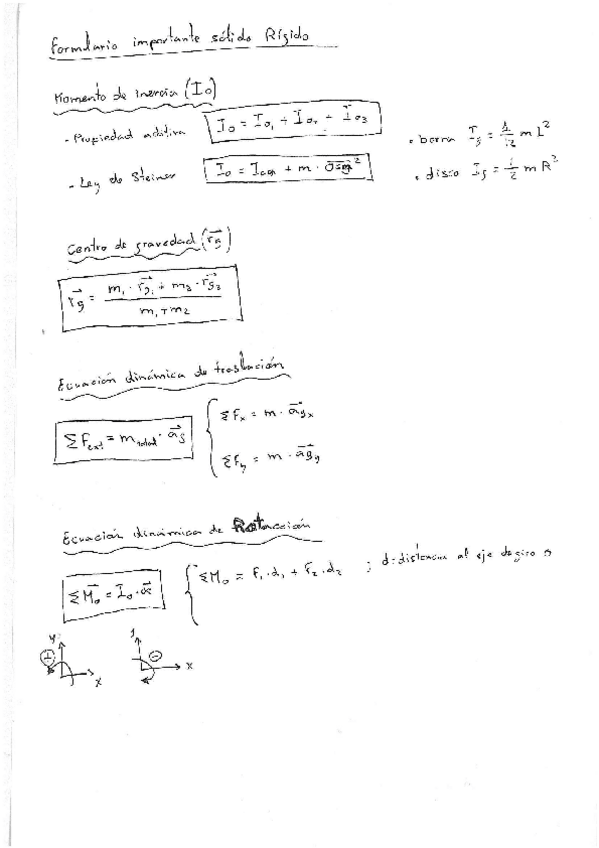 Formulario importante sólido Rígido
Momento de inercia (I₀)
- Propiedad aditiva  I₀ = I₀₁ + I₀₂ + I₀₃
• barra I_g = 1/12 m L²
- Ley de Steiner  I₀ = I_CDG + m · 
• disco I_g = 1/2 m R²
Centro de gravedad (r⃗g)
r⃗g = (m₁ · r⃗g₁ + m₂ · r⃗g₂) / (m₁ + m₂)
Ecuación dinámica de traslación
ΣF_ext = m_total · a⃗g
ΣFx = m · a⃗gx
ΣFy = m · a⃗gy
Ecuación dinámica de Rotacción
ΣM⃗₀ = I₀ · α⃗
ΣM₀ = F₁ · d₁ + F₂ · d₂ ; d: distancia al eje de giro
y + x
y − x